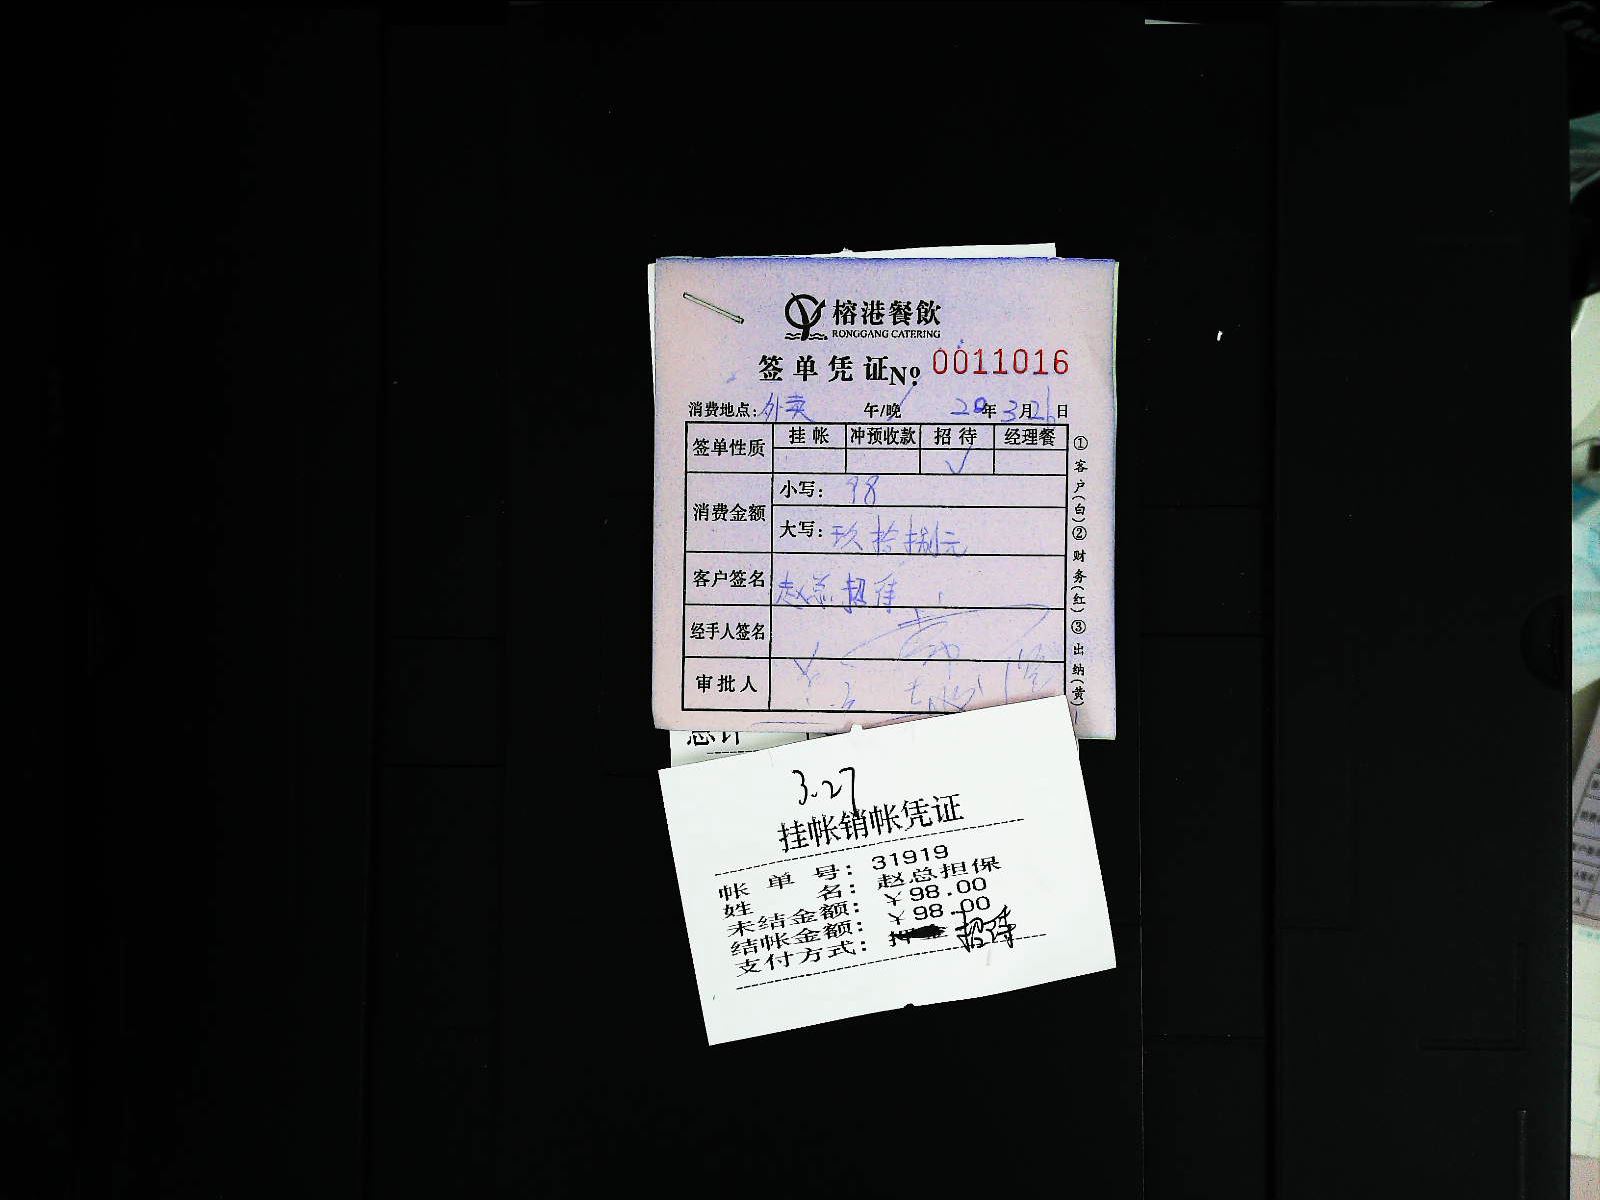 榕港餐飲
RONGGANG CATERING
签单凭证 No. 0011016
消费地点: 外卖 午/晚 20年3月26日
签单性质 挂帐 冲预收款 招待 经理餐
√
消费金额 小写: 98
大写: 玖拾捌元
客户签名 赵总招待
经手人签名
审批人
①客户(白)②财务(红)③出纳(黄)
总计
3.27
挂帐销帐凭证
帐单号: 31919
姓名: 赵总担保
未结金额: ¥98.00
结帐金额: ¥98.00
支付方式: 招待